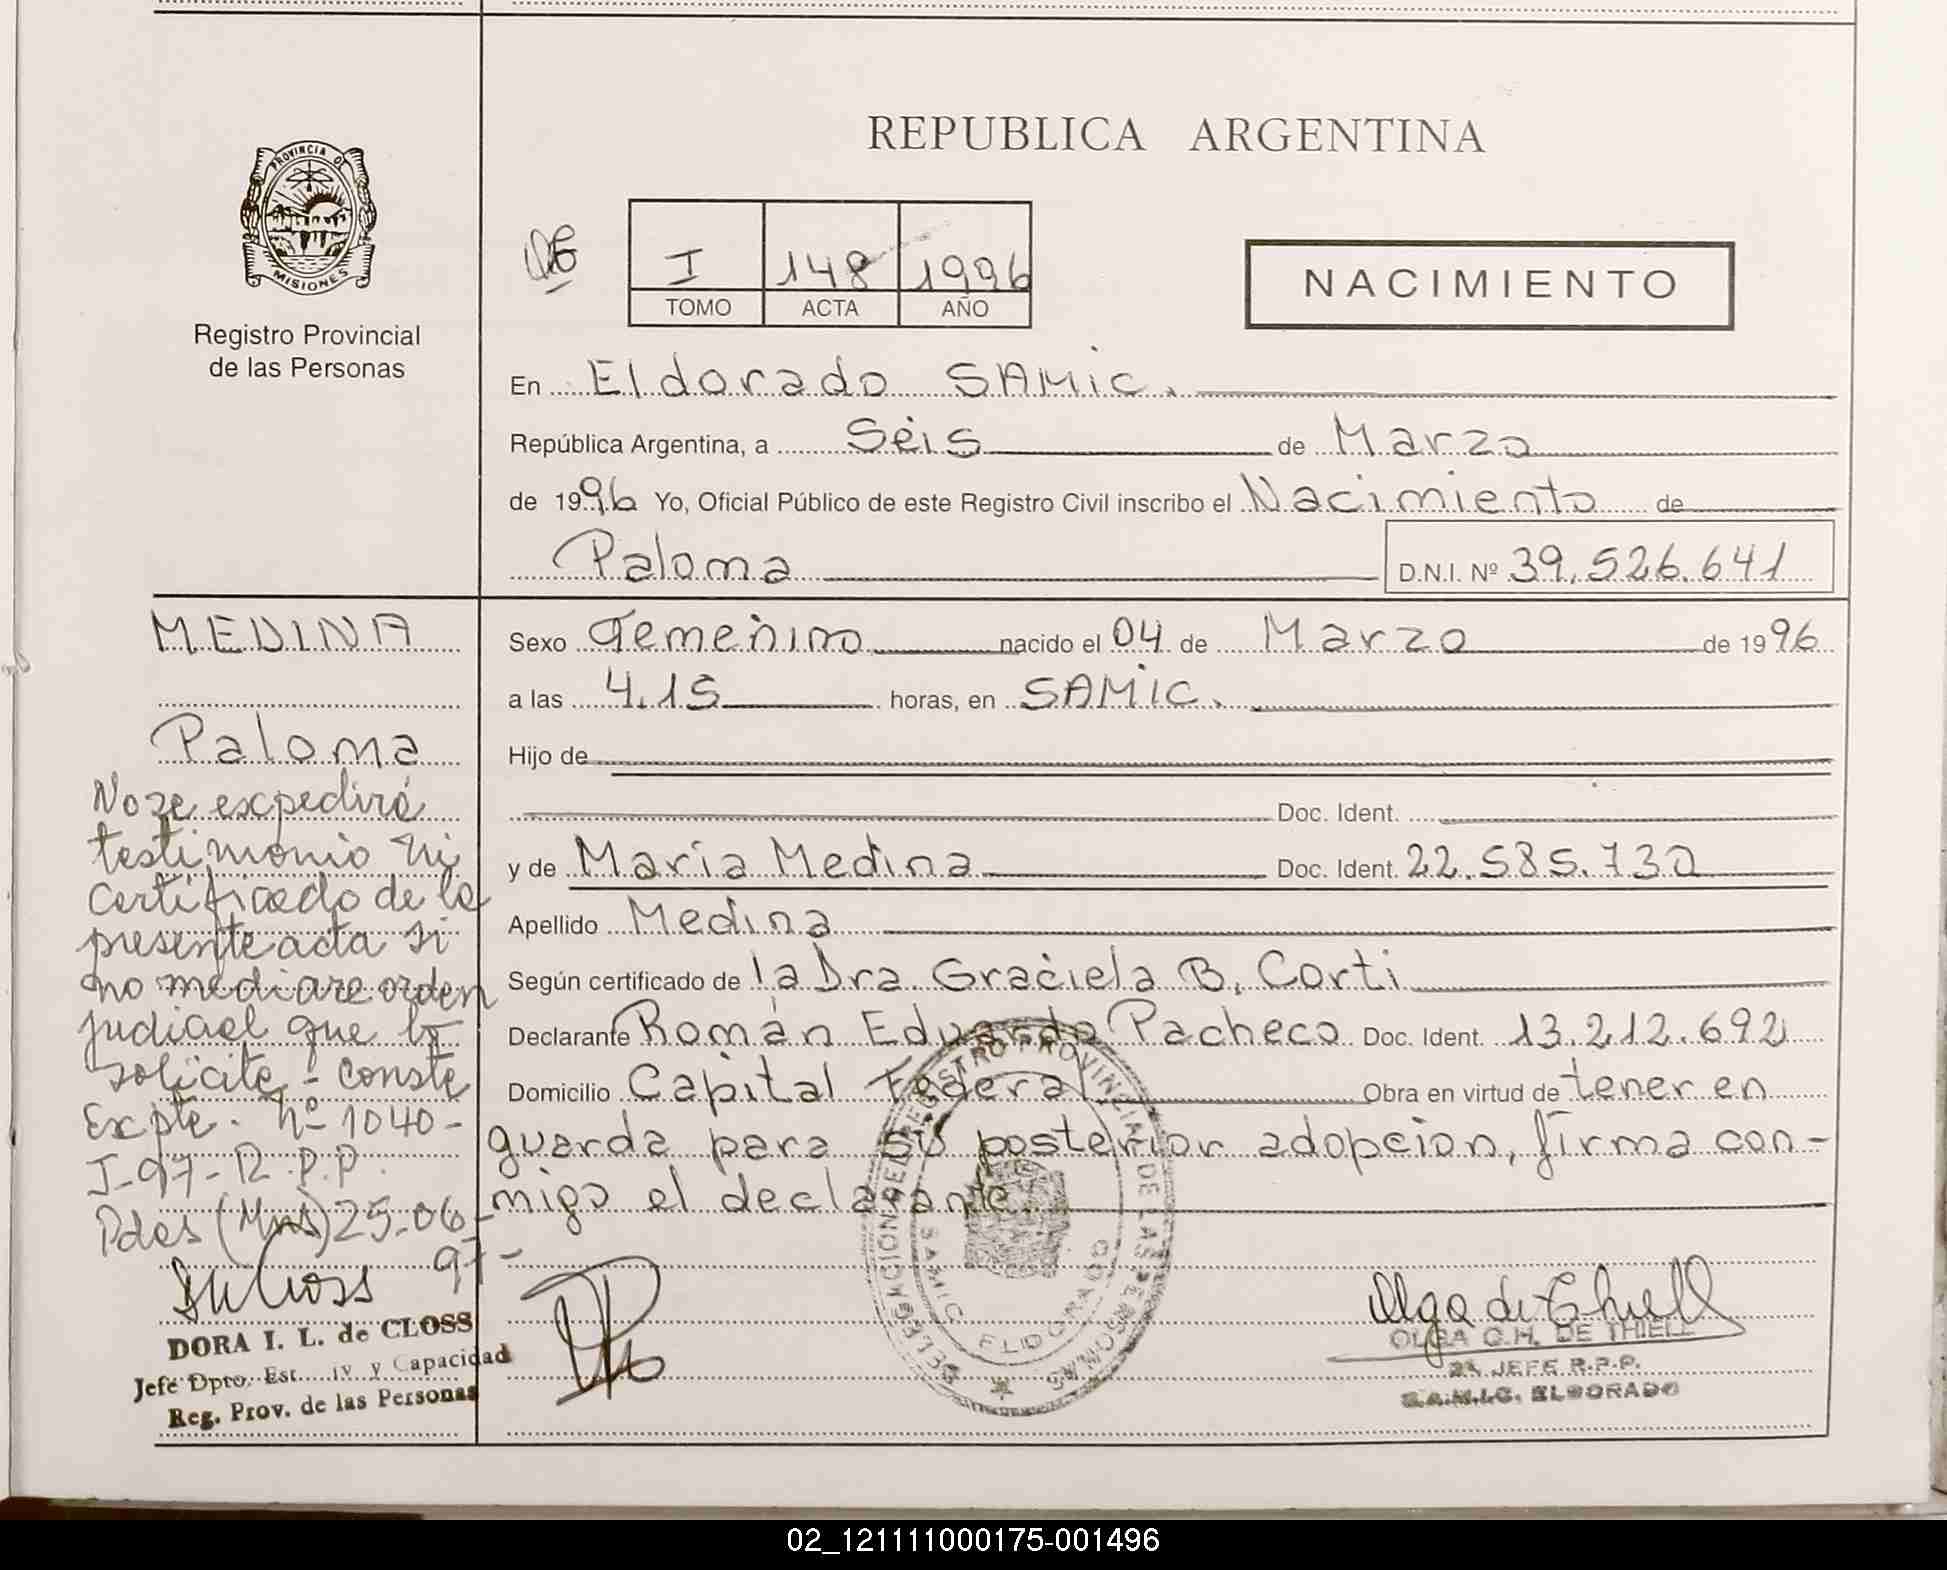 REPUBLICA ARGENTINA
PROVINCIA DE
MISIONES
Registro Provincial
de las Personas
I 148 1996
TOMO ACTA AÑO
NACIMIENTO
En Eldorado SAMIC.
República Argentina, a Seis de Marzo
de 1996 Yo, Oficial Público de este Registro Civil inscribo el Nacimiento de
Paloma D.N.I. Nº 39.526.641
MEDINA
Paloma
No se expedirá
testimonio ni
Certificado de la
presente acta si
no mediare orden
judicial que lo
solicite - Conste
Expte. Nº 1040-
I-97-R.P.P.
Pdas (Mns) 25-06-
97-
DORA I. L. de CLOSS
Jefe Dpto. Est. iv y Capacidad
Reg. Prov. de las Personas
Sexo Femenino nacido el 04 de Marzo de 1996
a las 4.15 horas, en SAMIC.
Hijo de
Doc. Ident.
y de María Medina Doc. Ident. 22.585.730
Apellido Medina
Según certificado de la Dra. Graciela B. Corti
Declarante Román Eduardo Pacheco Doc. Ident. 13.212.692
Domicilio Capital Federal, Obra en virtud de tener en
guarda para su posterior adopcion, firma con-
migo el declarante.
DELEGACION DEL REGISTRO PROVINCIAL DE LAS PERSONAS
SAMIC ELDORADO
Olga de Thiell
OLGA C.H. DE THIELL
2ª JEFE R.P.P.
S.A.M.I.C. ELDORADO
02_121111000175-001496